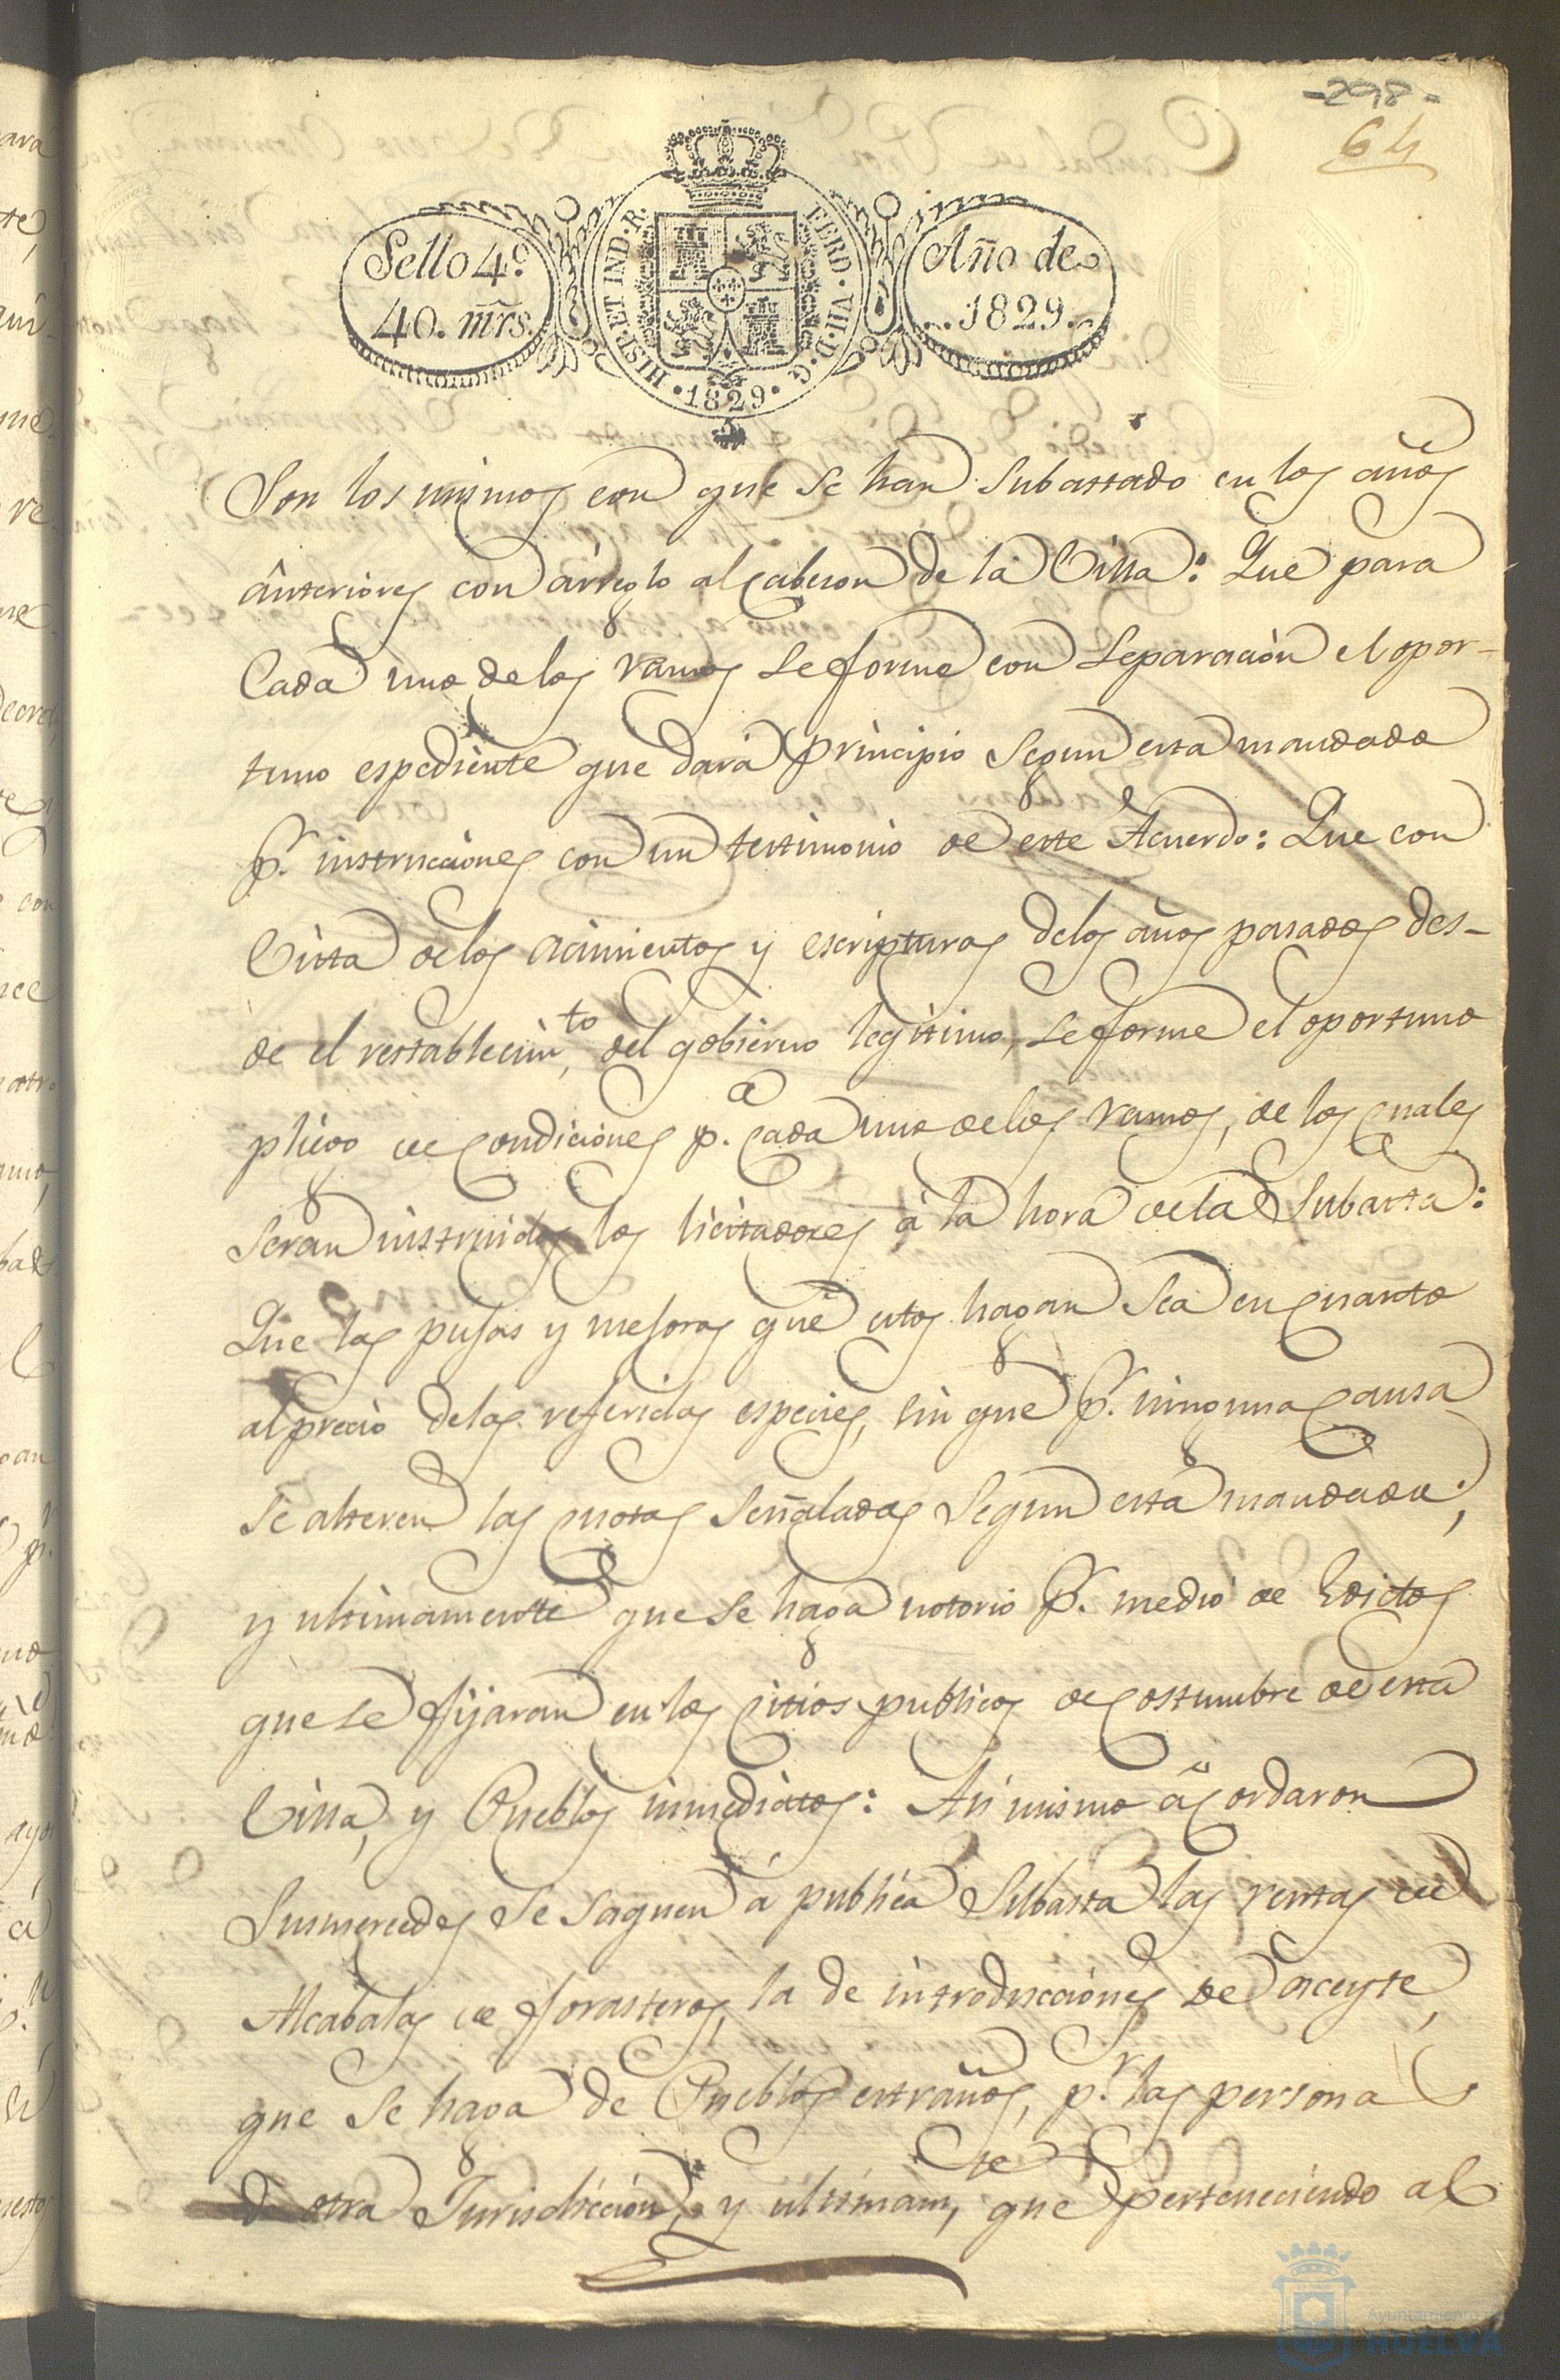 -298-
64
Sello 4º.
40. mrs.
HISP. ET IND. R.
FERD. VII. D. G.
1829
Año de
1829.
Son los mismos con que se han subastado en los años
ànteriores con àrreglo al Cabeson de la Villa: Que para
Cada uno de los ramos se forme con separaciòn el opor-
tuno espediente que darà principio segun esta mandado
pr. instrucciones con un testimonio de este Acuerdo: Que con
Vista de los acimientos y escripturas de los años pasados des-
de el restablecimto, del gobierno legitimo, se forme el oportuno
pliego de Condiciones pa. Cada uno de los ramos, de los Cuales
seran instruidos los licitadores à la hora de la Subasta:
Que las pujas y mejoras que estos hagan sea en Cuanto
al precio de las referidas especies, sin que pr. ninguna Causa
se alteren las Cuotas señaladas segun esta mandado;
y ultimamente que se haga notorio pr. medio de Edictos
que se fijaran en los Citios publicos de Costumbre de esta
Villa, y Pueblos inmediatos: Asi mismo àCordaron
Susmercedes se saquen á publica Subasta las rentas de
Alcabalas de forasteros, la de introducciónes de aceyte,
que se haga de Pueblos estraños, pr. las personas
de otra Jurisdicción, y ultimamte, que perteneciendo al
Ayuntamiento de
HUELVA